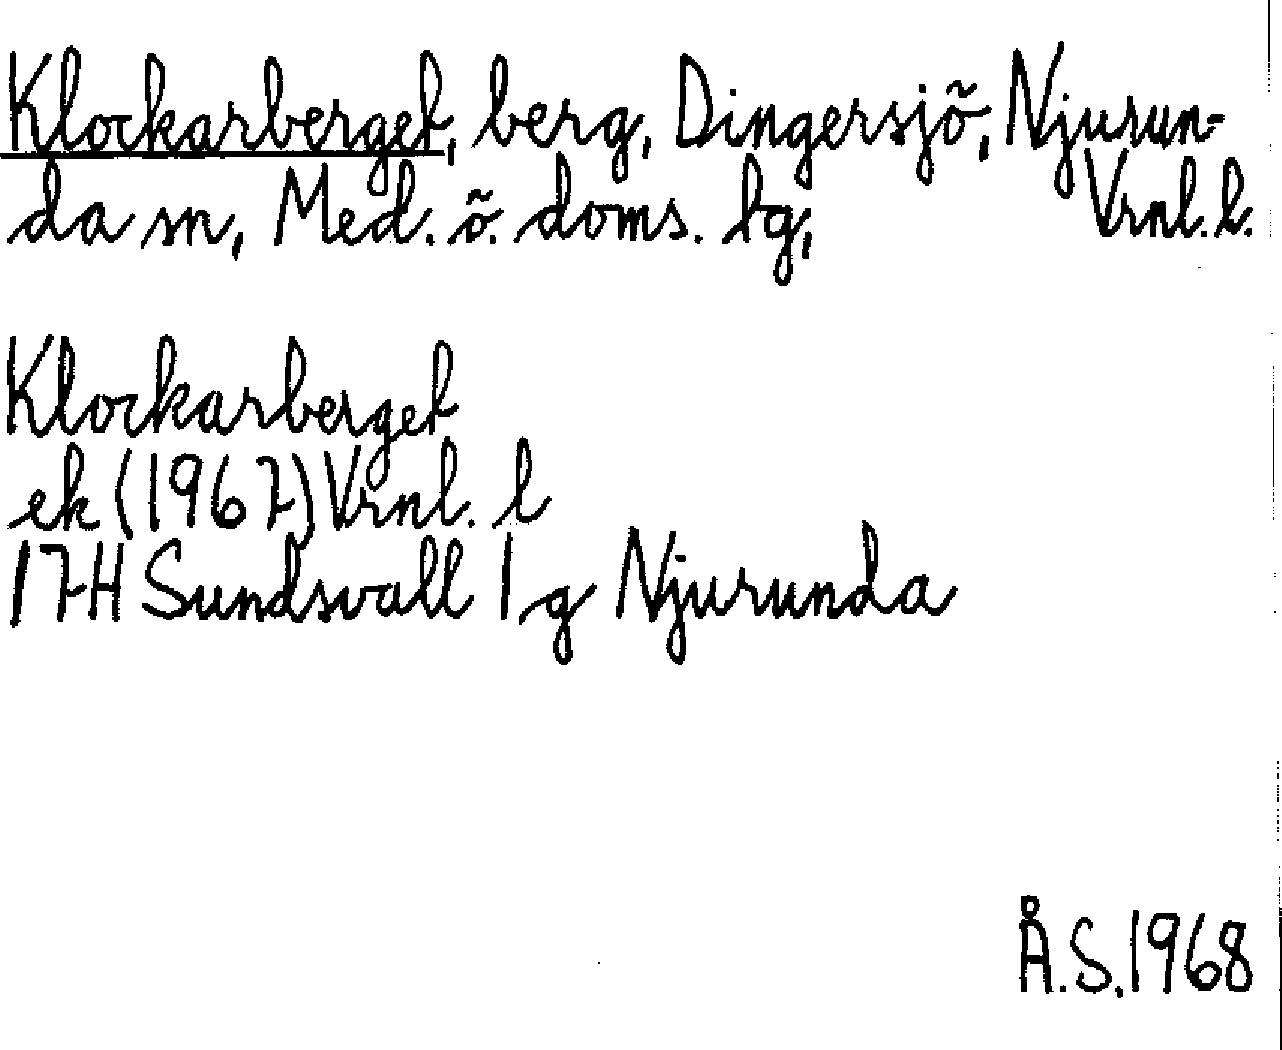 Klockarberget, berg, Dingersjö, Njurun-
da sn, Med. ö. doms. lg, Vrnl. l.
Klockarberget
ek (1967) Vrnl. l
17H Sundsvall 1 g Njurunda
Å.S. 1968